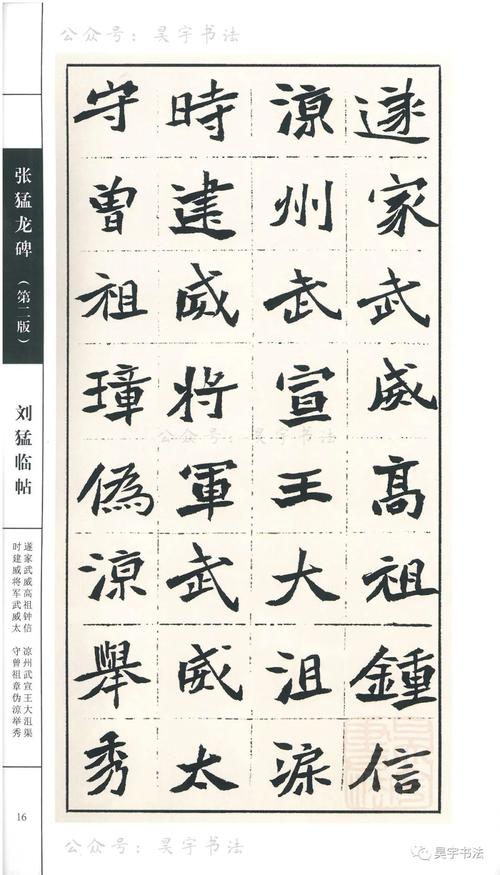 公众号：昊宇书法
遂家武威高祖鍾信
涼州武宣王大沮渠
時建威將軍武威太
守曾祖璋偽涼舉秀
公众号：昊宇书法
张猛龙碑（第二版）
刘猛临帖
遂家武威高祖钟信 凉州武宣王大沮渠
时建威将军武威太 守曾祖章伪凉举秀
16
公众号：昊宇书法
昊宇书法